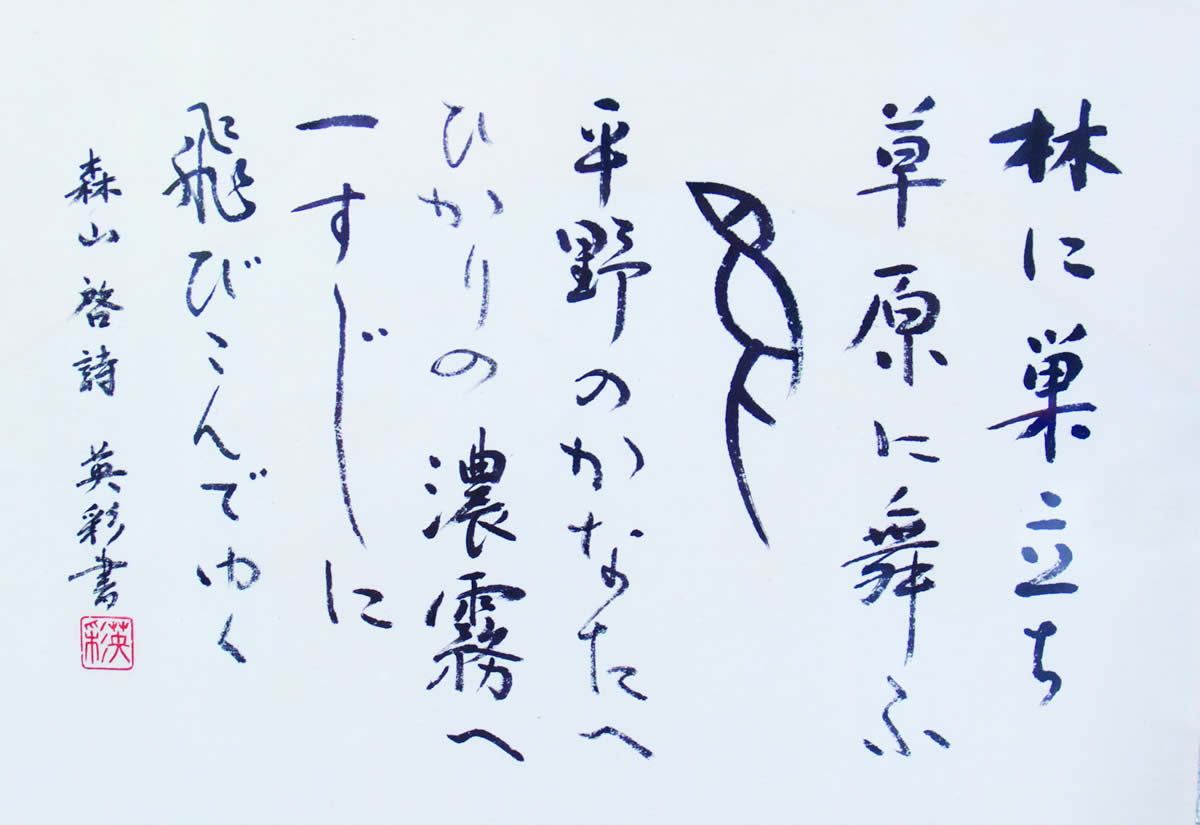 林に巣立ち
草原に舞ふ
平野のかなたへ
ひかりの濃霧へ
一すじに
飛びこんでゆく
森山啓詩 英彩書
英彩